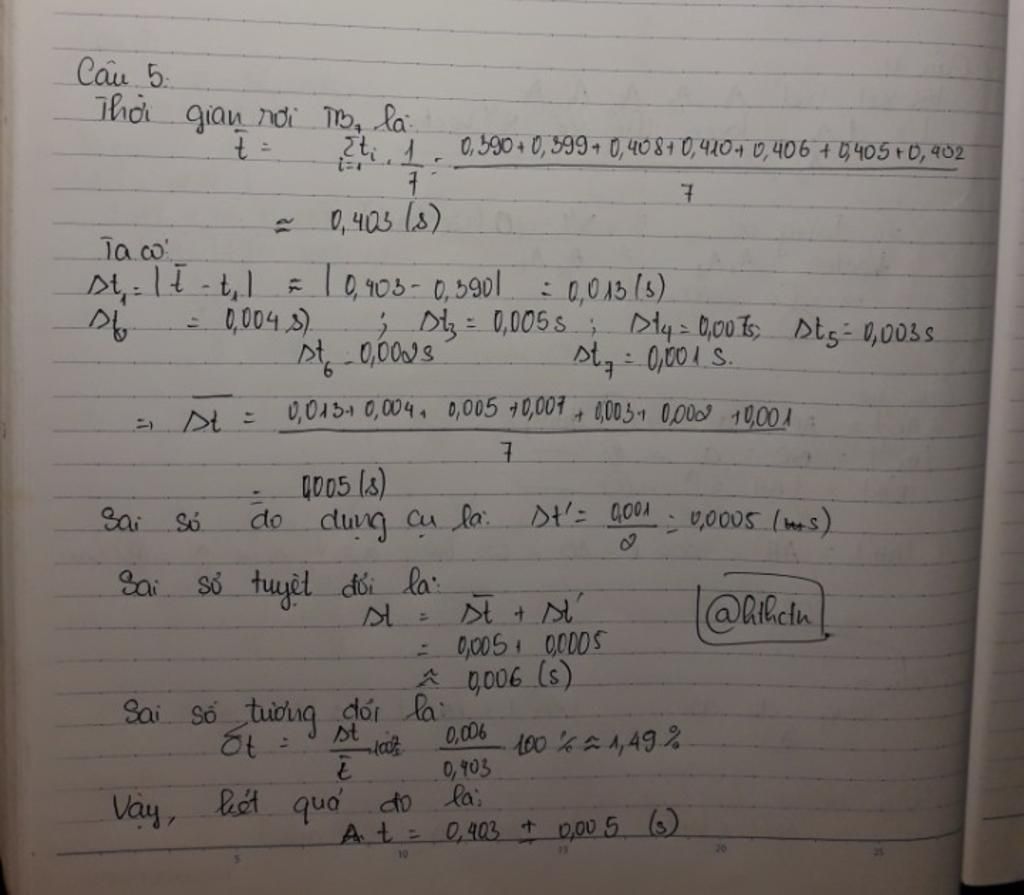 Câu 5:
Thời gian rơi TB, là:
t̄ = Σti i=1 . 1/7 = (0,390 + 0,399 + 0,408 + 0,410 + 0,406 + 0,405 + 0,402)/7
≈ 0,403 (s)
Ta có:
Δt₁ = |t̄ - t₁| ≈ |0,403 - 0,390| = 0,013 (s)
= 0,004 s) ; Δt₃ = 0,005 s ; Δt₄ = 0,007s; Δt₅ = 0,003s
Δt₆ = 0,002s Δt₇ = 0,001 s.
=> Δt̄ = (0,013 + 0,004 + 0,005 + 0,007 + 0,003 + 0,002 + 0,001)/7
= 0,005 (s)
Sai số do dụng cụ là: Δt' = 0,001/2 = 0,0005 (s)
Sai số tuyệt đối là:
Δt = Δt̄ + Δt'
= 0,005 + 0,0005
≈ 0,006 (s)
@hthctn
Sai số tương đối là:
δt = Δt/t̄ .100% 0,006/0,403 100% ≈ 1,49%
Vậy, kết quả đo là:
A. t = 0,403 ± 0,005 (s)
5 10 15 20 25